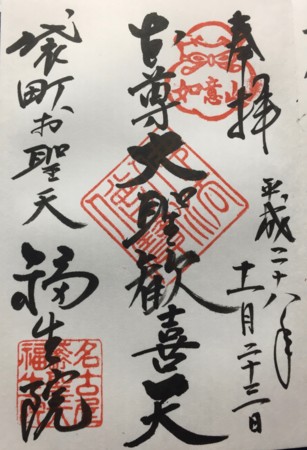 奉拝
平成二十八年
十一月二十三日
如意山
本尊大聖歓喜天
袋町お聖天
福生院
名古屋